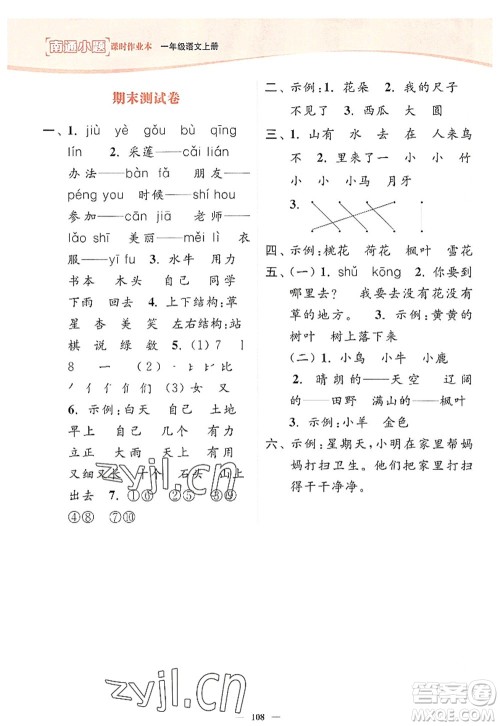 南通小题 课时作业本 一年级语文上册
期末测试卷
一、1. jiù yè gǒu bù qīng
lín 2. 采莲——cǎi lián
办法——bàn fǎ 朋友——
péng you 时候——shí hou
参加——cān jiā 老师——
lǎo shī 美丽——měi lì 衣
服——yī fu 3. 水牛 用力
书本 木头 自己 同学
下雨 回来 4. 上下结构：草
星 杏 美 笑 左右结构：站
棋 说 绿 数 5. (1) 7 丨
8 一 (2) 丿 ㇏ 比
丿 亻 亻 们 们 (3) 女 又
6. 示例：白天 自己 土地
早上 自己 几个 有力
立正 大雨 天上 木马
又细又长 个子 石头 山上
出去 7.
④⑧ ⑦⑩
二、示例：1. 花朵 2. 我的尺子
不见了 3. 西瓜 大 圆
三、1. 山有 水 去 在 人来鸟
不惊 2. 里来了一 小 小
小 小马 月牙
3.
四、示例：桃花 荷花 枫叶 雪花
五、(一) 1. shǔ kōng 2. 你要到
哪里去呢？我要去没有花没有
草的地方。 3. 示例：黄黄的
树叶 树上落下来
(二) 1. 小鸟 小牛 小鹿
2. 晴朗的——天空 辽阔
的——田野 满山的——枫叶
3. 示例：小羊 金色
六、示例：星期天，小明在家里帮妈
妈打扫卫生。他们把家里打扫
得干干净净。
zyjl.cn
zyjl.cn
108